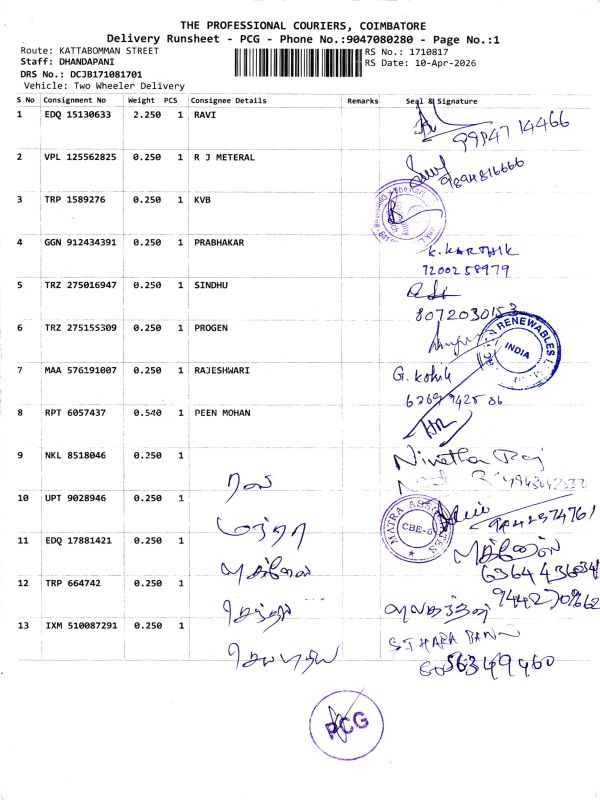 THE PROFESSIONAL COURIERS, COIMBATORE
Delivery Runsheet - PCG - Phone No.:9047080280 - Page No.:1
Route: KATTABOMMAN STREET RS No.: 1710817
Staff: DHANDAPANI RS Date: 10-Apr-2026
DRS No.: DCJB171081701
Vehicle: Two Wheeler Delivery
S No Consignment No Weight PCS Consignee Details Remarks Seal & Signature
1 EDQ 15130633 2.250 1 RAVI
99947 14466
2 VPL 125562825 0.250 1 R J METERAL
9894816666
3 TRP 1589276 0.250 1 KVB
4 GGN 912434391 0.250 1 PRABHAKAR
K. KARTHIK
7200258979
5 TRZ 275016947 0.250 1 SINDHU
8072030153
6 TRZ 275155309 0.250 1 PROGEN
RENEWABLES
INDIA
7 MAA 576191007 0.250 1 RAJESHWARI
G. Kokik
8 RPT 6057437 0.540 1 PEEN MOHAN
9 NKL 8518046 0.250 1
Nivetha Raj
ரவி
10 UPT 9028946 0.250 1
மித்ரா
MATRA ASSOCIATES
CBE-6
11 EDQ 17881421 0.250 1
12 TRP 664742 0.250 1
13 IXM 510087291 0.250 1
PCG